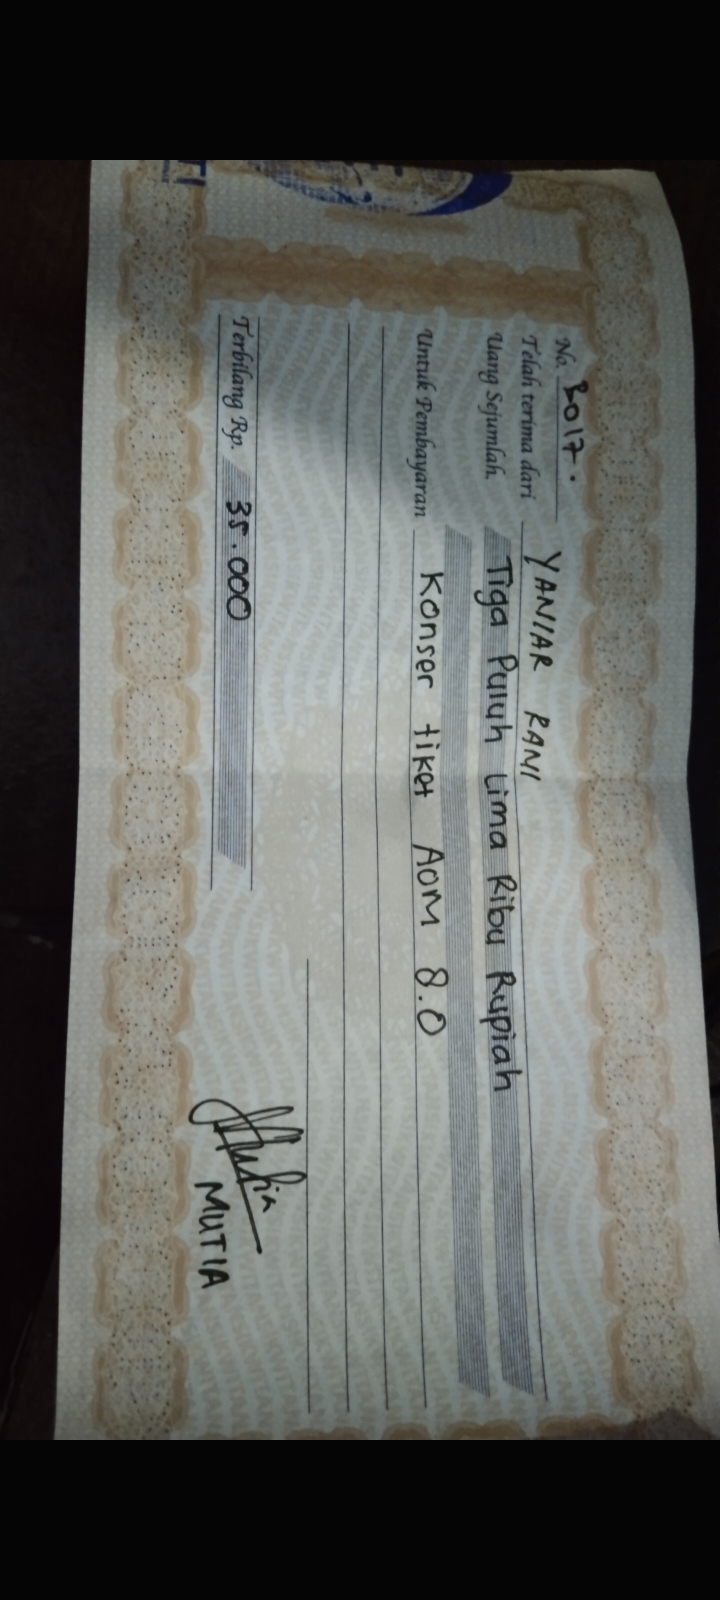 No. B017.
Telah terima dari YANIAR RAMI
Uang Sejumlah. Tiga Puluh Lima Ribu Rupiah
Untuk Pembayaran Konser tiket AOM 8.0
Terbilang Rp. 35.000
MUTIA